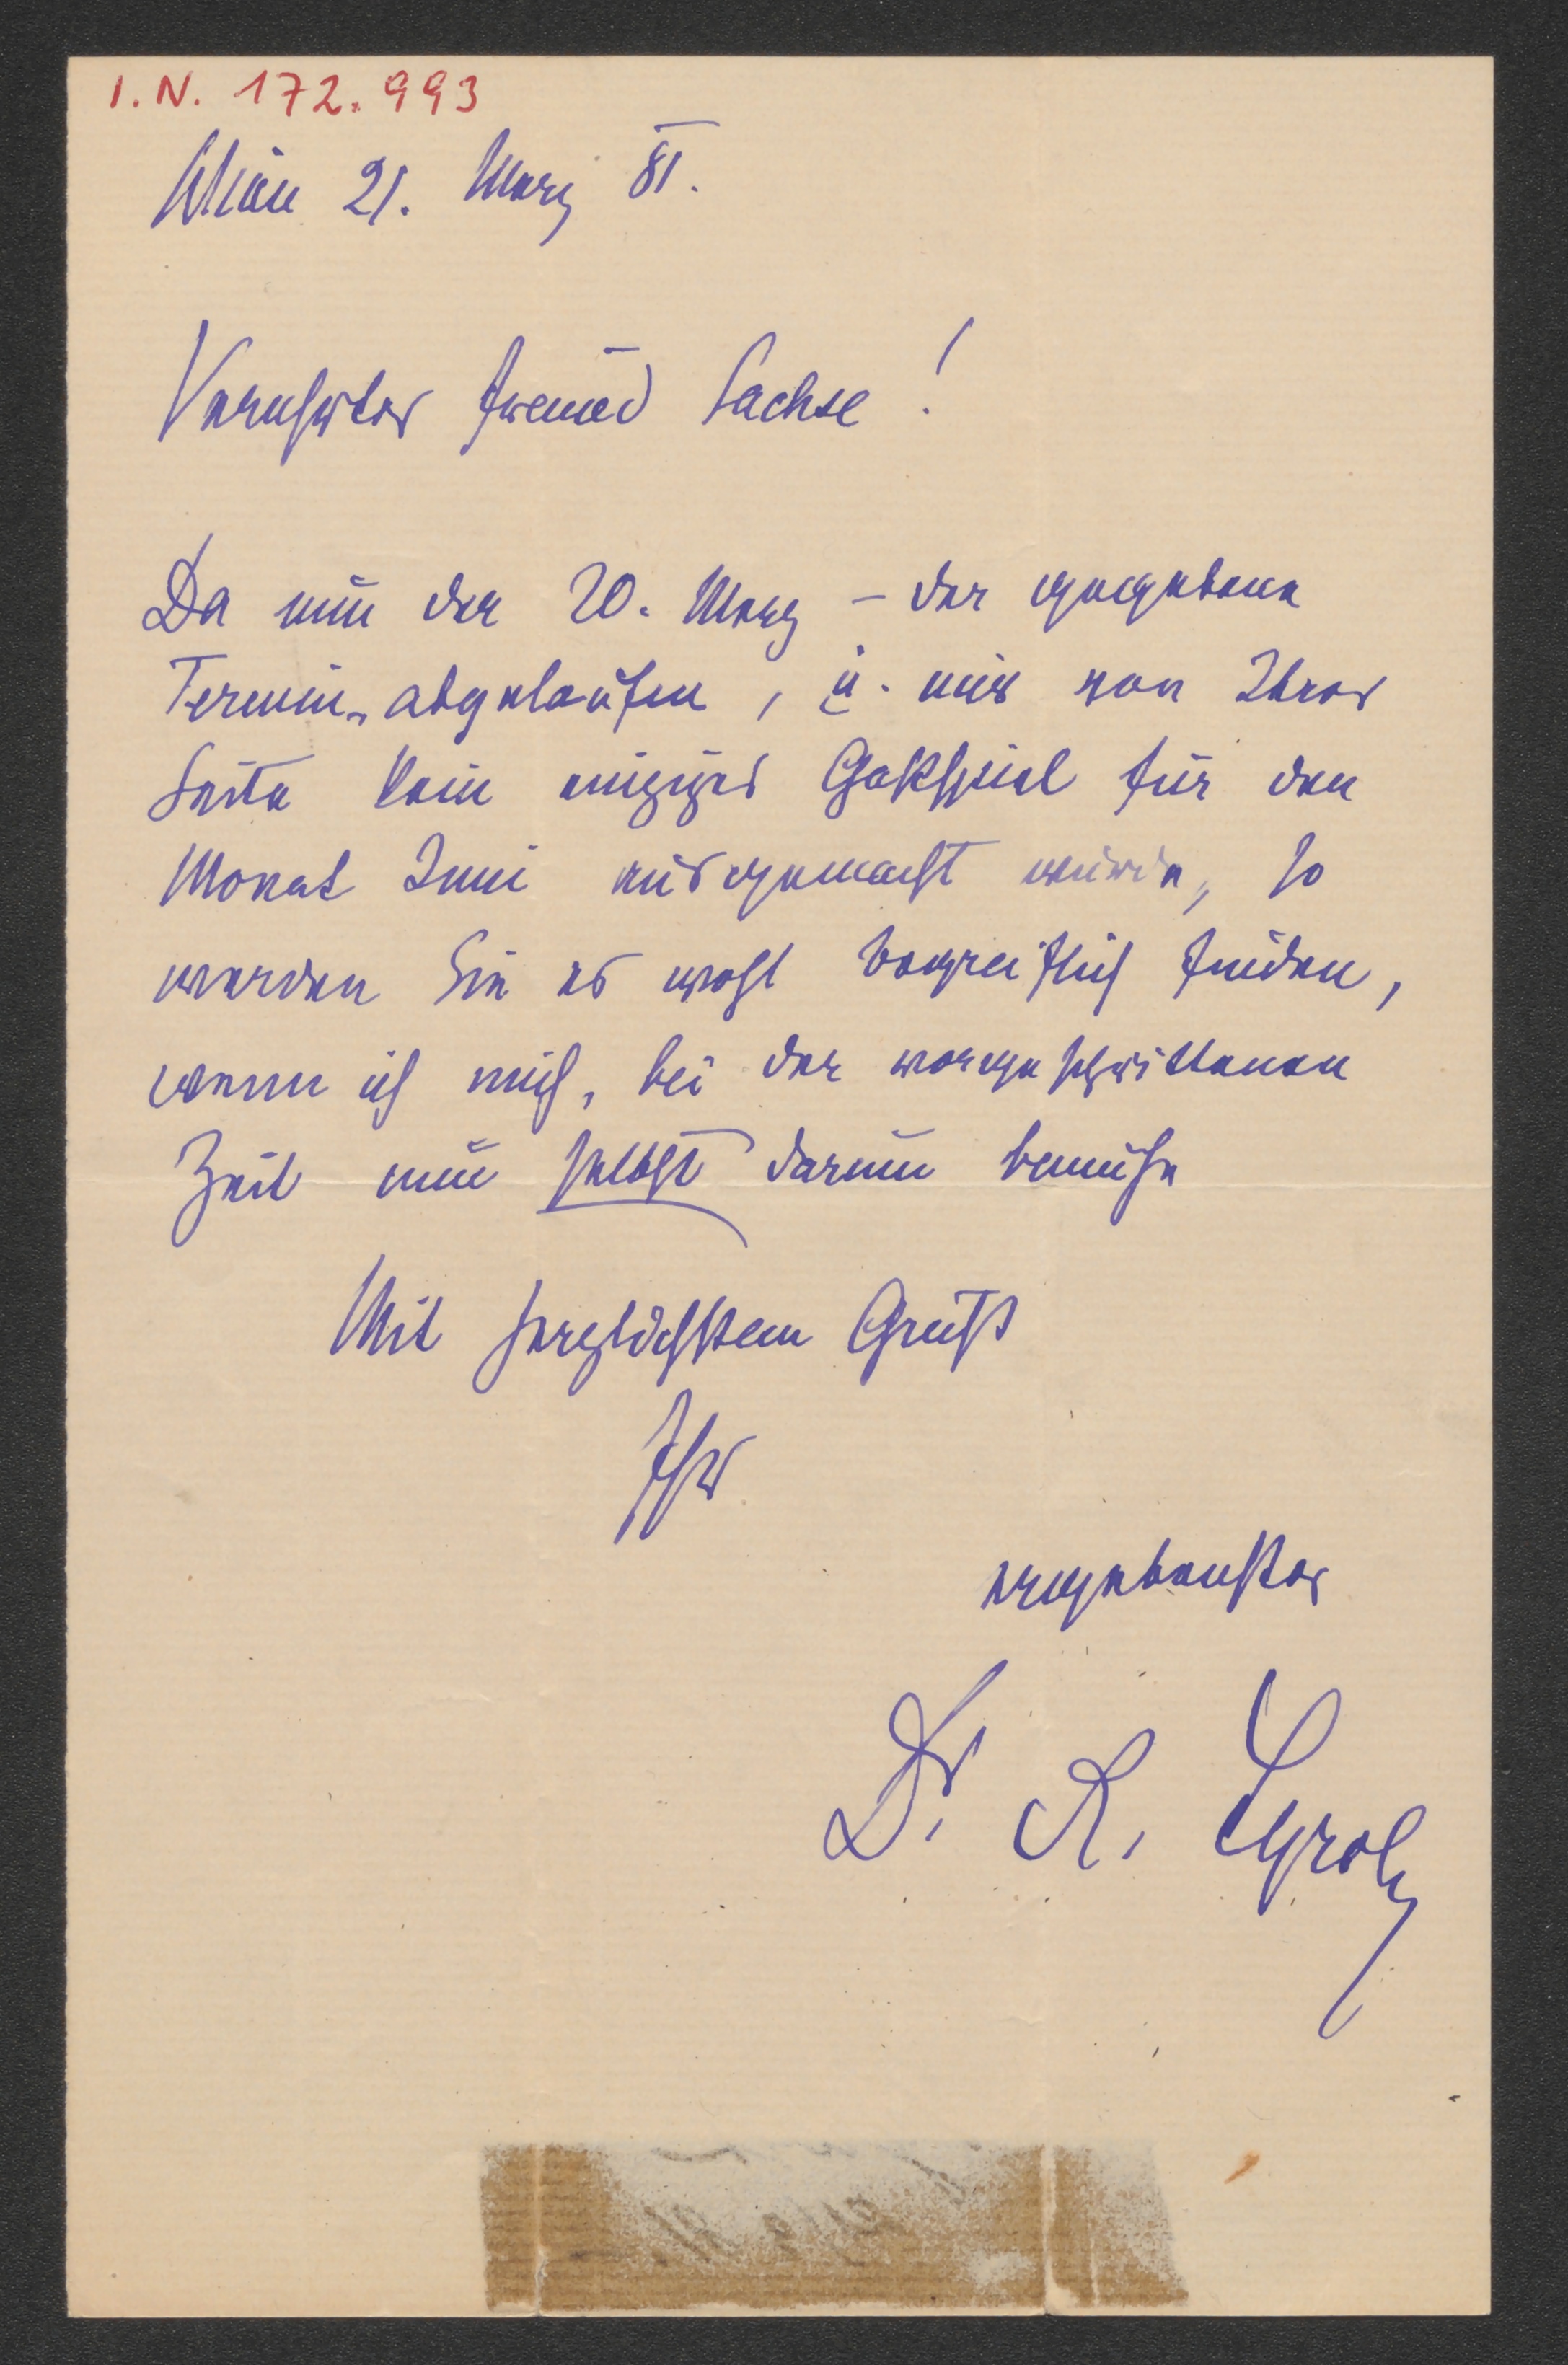 I.N. 172.993
Wien 21. März 81.
Verehrter Freund Sachse!
Da nun der 20. März – der gegebene
Termin, abgelaufen, u. mir von Ihrer
Seite kein einziges Gastspiel für den
Monat Juni ausgemacht wurde, so
werden Sie es wohl begreiflich finden,
wenn ich mich, bei der vorgeschrittenen
Zeit nun selbst darum bemühe
Mit herzlichstem Gruß
Ihr
ergebenster
Dr. R. Tyrolt